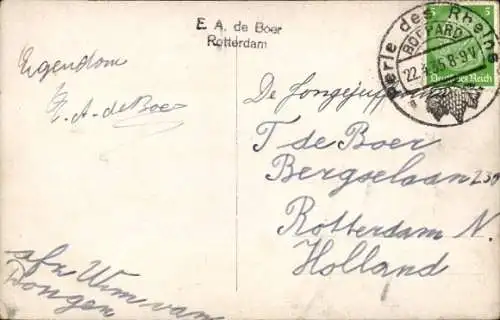 E. A. de Boer
Rotterdam
Eigendom
E. A. de Boer
afz Wim van
Dongen
Perle des Rheins
BOPPARD
22.3.35.8-9V
a
5 5
Deutsches Reich
De Jongejuffrouw
T de Boer
Bergselaan
Rotterdam N.
Holland